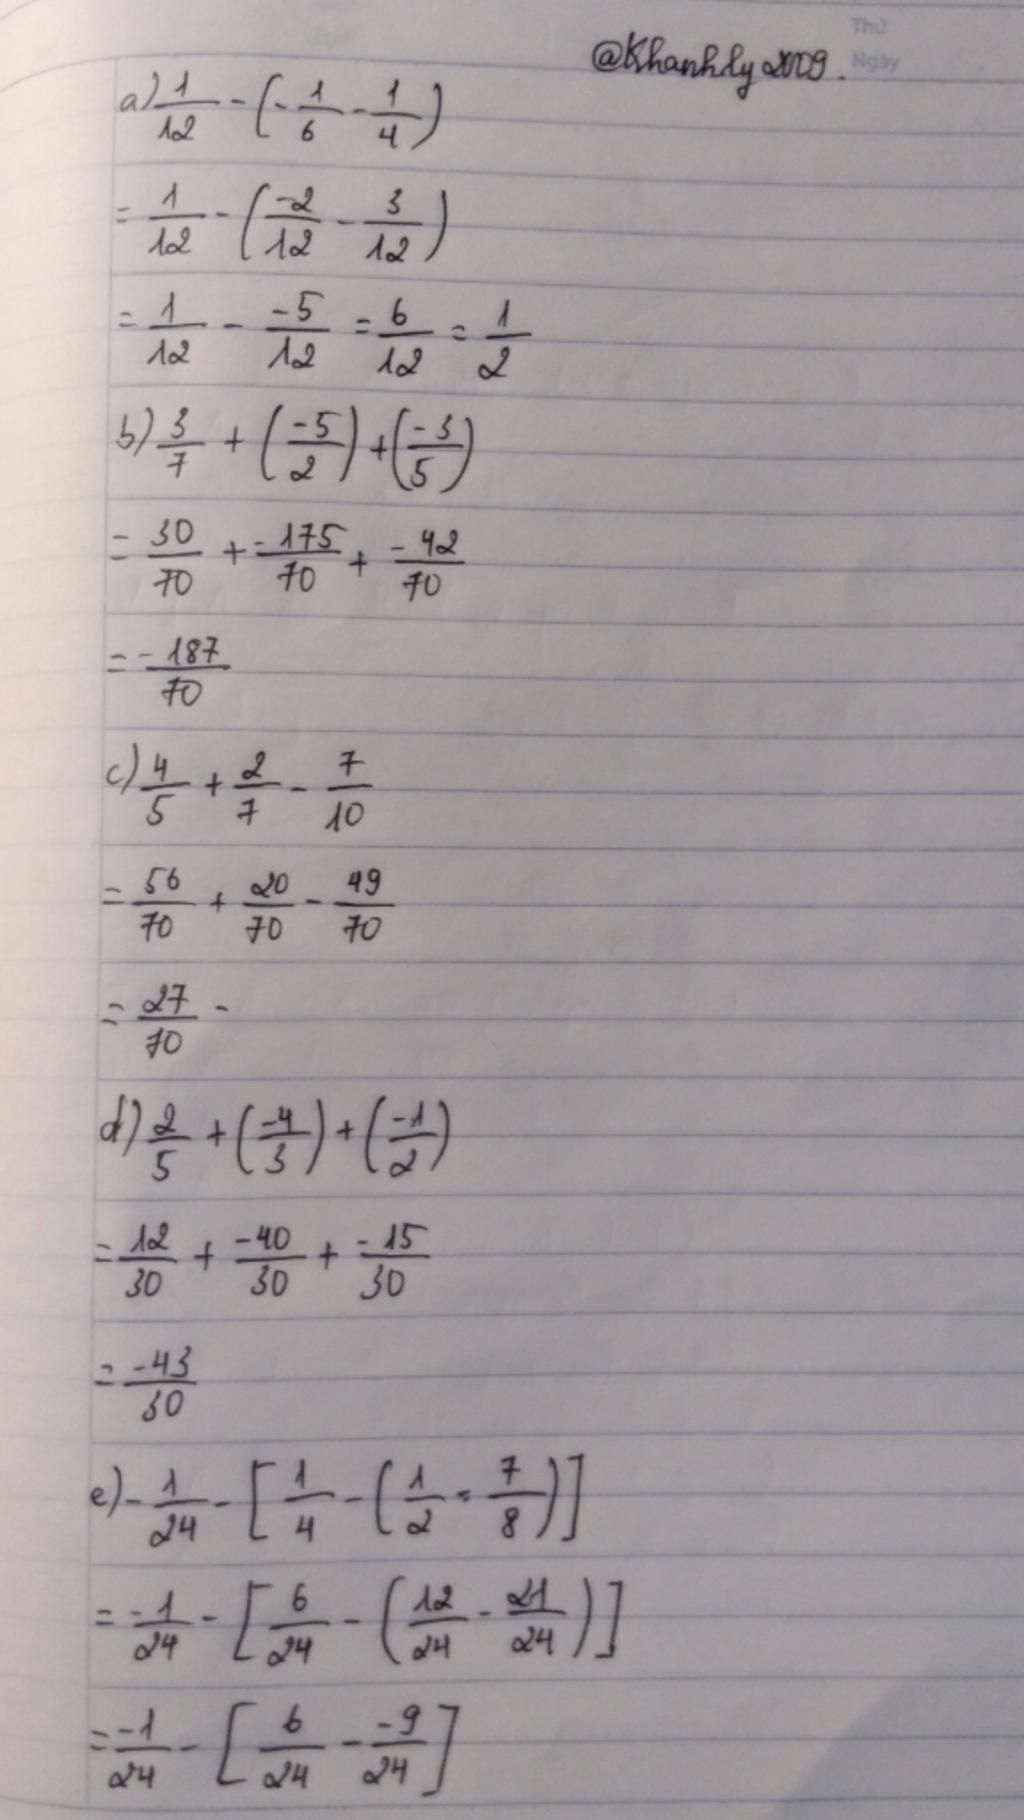 Thứ
@Khanhly2009.
Ngày
a) 1/12 - (-1/6 - 1/4)
= 1/12 - (-2/12 - 3/12)
= 1/12 - -5/12 = 6/12 = 1/2
b) 3/7 + (-5/2) + (-3/5)
= 30/70 + -175/70 + -42/70
= -187/70
c) 4/5 + 2/7 - 7/10
= 56/70 + 20/70 - 49/70
= 27/70 -
d) 2/5 + (-4/3) + (-1/2)
= 12/30 + -40/30 + -15/30
= -43/30
e) -1/24 - [1/4 - (1/2 - 7/8)]
= -1/24 - [6/24 - (12/24 - 21/24)]
= -1/24 - [6/24 - -9/24]